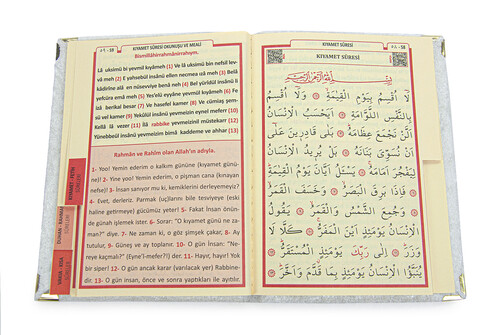 KIYAMET SÛRESİ OKUNUŞU VE MEALİ
Bismillâhirrahmânirrahıym.
Lâ uksimü bi yevmil kıyâmeti (1) Ve lâ uksimü bin nefsil lev-
vâmeh (2) E yahsebül insânü ellen necmea ızâ meh (3) Belâ
kâdirîne alâ en nüsevviye benâ neh (4) Bel yürîdül insânü li
yefcüra emâ meh (5) Yes'elü eyyâne yevmül kıyâmeh (6) Fe
izâ berikal besar (7) Ve hasefel kamer (8) Ve cümiaş şem-
sü vel kamer (9) Yekûlül insânü yevmeizin eynel meferr (10)
Kellâ lâ vezer (11) İlâ rabbike yevmeizinil müstekarr (12)
Yünebbeül insânü yevmeizim bimâ kaddeme ve ahhar (13)
Rahmân ve Rahîm olan Allah'ın adıyla.
1- Yoo! Yemin ederim o kalkım gününe (kıyamet günü-
ne)! 2- Yine yoo! Yemin ederim, o pişman cana (kınayan
nefse)! 3- İnsan sanıyor mu ki, kemiklerini derlemeyiz?
4- Evet, derleriz. Parmak (uç)larını bile tesviyeye (eski
haline getirmeye) gücümüz yeter! 5- Fakat İnsan önün-
de günah işlemek ister 6- Sorar: "O kıyamet günü ne za-
man?" diye. 7- Ne zaman ki, o göz şimşek çakar, 8- Ay
tutulur, 9- Güneş ve ay toplanır. 10- O gün İnsan: "Ne-
reye kaçmalı?" (Eyne'l-mefer?!) der. 11- Hayır, hayır! Yok
bir siper! 12- O gün ancak karar (varılacak yer) Rabbine-
dir. 13- O gün insan, önce ve sonra yaptıkları ile ayıtılır.
KIYAMET - FETİH
SÛRELERİ
DUHAN - RAHMAN
SÛRELERİ
VAKIA - KISA
SÛRELER
KIYAMET SÛRESİ
٥٨ - 58
KIYAMET SÛRESİ
بِسْمِ اللّٰهِ الرَّحْمٰنِ الرَّحٖيمِ
لَٓا اُقْسِمُ بِيَوْمِ الْقِيٰمَةِۙ وَلَٓا اُقْسِمُ
بِالنَّفْسِ اللَّوَّامَةِۜ اَيَحْسَبُ الْاِنْسَانُ
اَلَّنْ نَجْمَعَ عِظَامَهُۜ بَلٰى قَادِرٖينَ عَلٰٓى
اَنْ نُسَوِّيَ بَنَانَهُ بَلْ يُرٖيدُ الْاِنْسَانُ
لِيَفْجُرَ اَمَامَهُۚ يَسْـَٔلُ اَيَّانَ يَوْمُ الْقِيٰمَةِۜ
فَاِذَا بَرِقَ الْبَصَرُۙ وَخَسَفَ الْقَمَرُۙ
وَجُمِعَ الشَّمْسُ وَالْقَمَرُۙ يَقُولُ
الْاِنْسَانُ يَوْمَئِذٍ اَيْنَ الْمَفَرُّۚ كَلَّا لَا
وَزَرَۜ اِلٰى رَبِّكَ يَوْمَئِذٍ الْمُسْتَقَرُّۜ
يُنَبَّؤُا الْاِنْسَانُ يَوْمَئِذٍ بِمَا قَدَّمَ وَاَخَّرَۜ